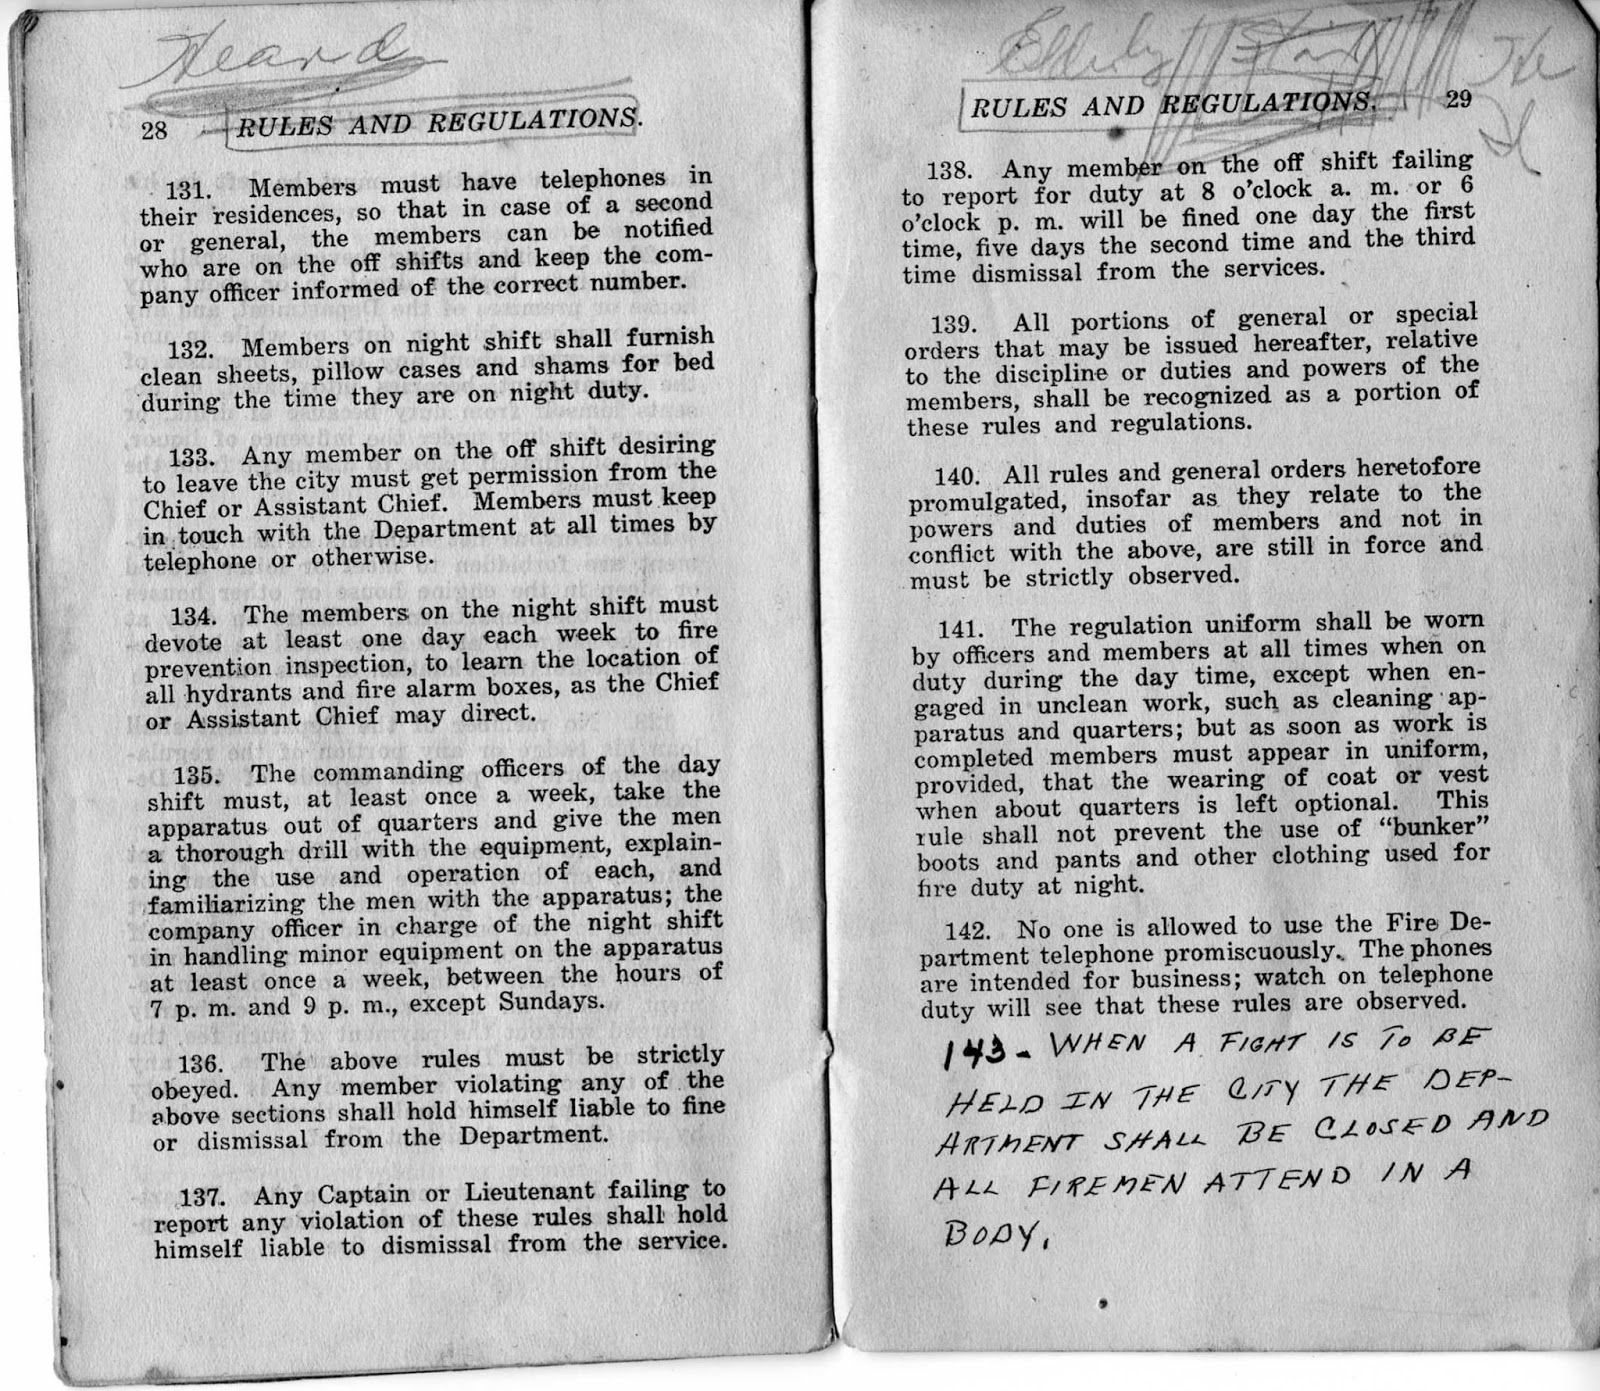 Heard
28 RULES AND REGULATIONS.
131. Members must have telephones in
their residences, so that in case of a second
or general, the members can be notified
who are on the off shifts and keep the com-
pany officer informed of the correct number.
132. Members on night shift shall furnish
clean sheets, pillow cases and shams for bed
during the time they are on night duty.
133. Any member on the off shift desiring
to leave the city must get permission from the
Chief or Assistant Chief. Members must keep
in touch with the Department at all times by
telephone or otherwise.
134. The members on the night shift must
devote at least one day each week to fire
prevention inspection, to learn the location of
all hydrants and fire alarm boxes, as the Chief
or Assistant Chief may direct.
135. The commanding officers of the day
shift must, at least once a week, take the
apparatus out of quarters and give the men
a thorough drill with the equipment, explain-
ing the use and operation of each, and
familiarizing the men with the apparatus; the
company officer in charge of the night shift
in handling minor equipment on the apparatus
at least once a week, between the hours of
7 p. m. and 9 p. m., except Sundays.
136. The above rules must be strictly
obeyed. Any member violating any of the
above sections shall hold himself liable to fine
or dismissal from the Department.
137. Any Captain or Lieutenant failing to
report any violation of these rules shall hold
himself liable to dismissal from the service.
RULES AND REGULATIONS. 29
138. Any member on the off shift failing
to report for duty at 8 o'clock a. m. or 6
o'clock p. m. will be fined one day the first
time, five days the second time and the third
time dismissal from the services.
139. All portions of general or special
orders that may be issued hereafter, relative
to the discipline or duties and powers of the
members, shall be recognized as a portion of
these rules and regulations.
140. All rules and general orders heretofore
promulgated, insofar as they relate to the
powers and duties of members and not in
conflict with the above, are still in force and
must be strictly observed.
141. The regulation uniform shall be worn
by officers and members at all times when on
duty during the day time, except when en-
gaged in unclean work, such as cleaning ap-
paratus and quarters; but as soon as work is
completed members must appear in uniform,
provided, that the wearing of coat or vest
when about quarters is left optional. This
rule shall not prevent the use of "bunker"
boots and pants and other clothing used for
fire duty at night.
142. No one is allowed to use the Fire De-
partment telephone promiscuously. The phones
are intended for business; watch on telephone
duty will see that these rules are observed.
143- WHEN A FIGHT IS TO BE
HELD IN THE CITY THE DEP-
ARTMENT SHALL BE CLOSED AND
ALL FIREMEN ATTEND IN A
BODY.